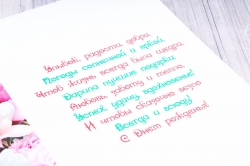 Улыбок, радости, добра,
Погоды солнечной и яркой,
Чтоб жизнь всегда была щедра,
Дарила лучшие подарки.
Любовь, заботу и тепло,
Успех, удачу, вдохновенье!
И чтобы сказочно везло
Всегда и всюду!
С Днем рождения!